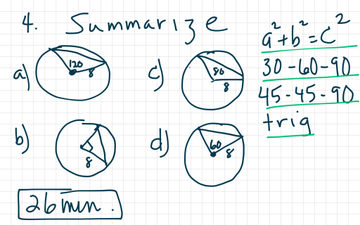 4. Summarize
a² + b² = c²
30-60-90
45-45-90
trig
a) 120 8
c) 80 8
b) 8
d) 60 8
26 min.